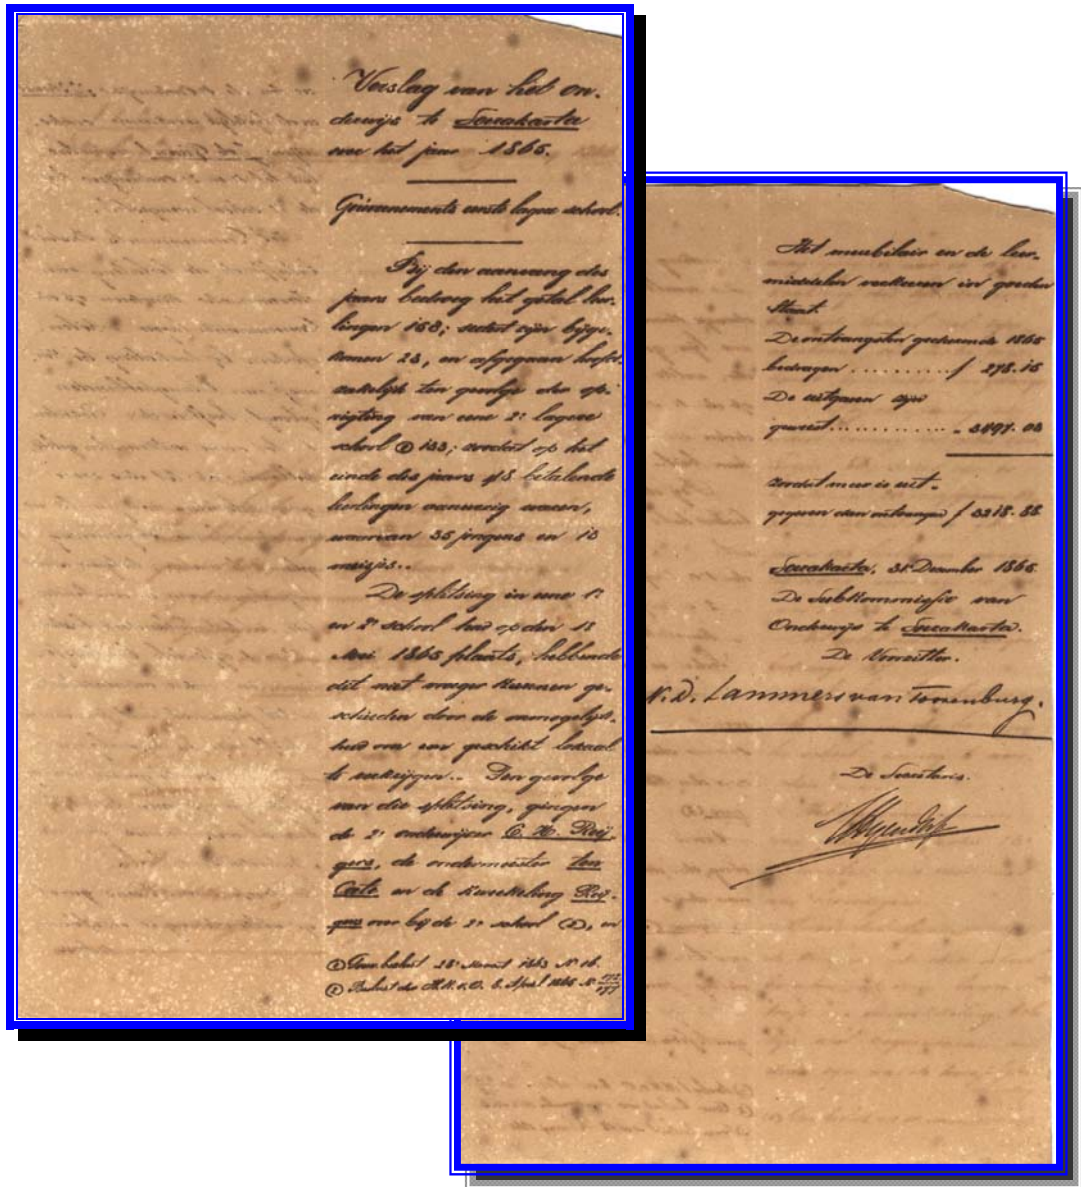 Verslag van het on-
derwijs te Soerakarta
over het jaar 1865.
Gouvernements eerste lagere school.
Bij den aanvang des
jaars bedroeg het getal leer-
lingen 168; sedert zijn bijge-
komen 23, en afgegaan hoofd-
zakelijk ten gevolge der op-
rigting van eene 2e lagere
school ① 133; zoodat op het
einde des jaars 48 betalende
leerlingen aanwezig waren,
waarvan 35 jongens en 13
meisjes.
De splitsing in eene 1e
en 2e school had op den 13
Mei 1865 plaats, hebbende
dit niet vroeger kunnen ge-
schieden door de onmogelijk-
heid om een geschikt lokaal
te verkrijgen. Ten gevolge
van die splitsing, gingen
de 2e onderwijzer
de ondermeester ten
Cate en de kweekeling
over bij de 2e school ②, en
① Gouv. besluit 28 1863 No 16.
② Besluit der 6 April 1865 No
Het meubilair en de leer-
middelen verkeeren in goeden
staat.
De ontvangsten gedurende 1865
bedragen .......... f 278.15
De uitgaven zijn
geweest .......... „ 3497.03
zoodat meer is uit-
gegeven dan ontvangen f 3218.88
Soerakarta, 31 December 1865
De Subkommissie van
Onderwijs te Soerakarta.
De Voorzitter.
N. D. Lammers van Toorenburg.
De Secretaris.